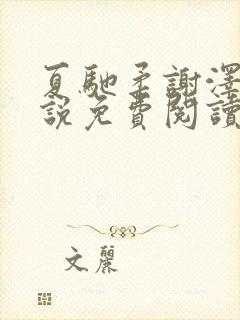 夏馳柔謝澤
說免費閱讀
文麗